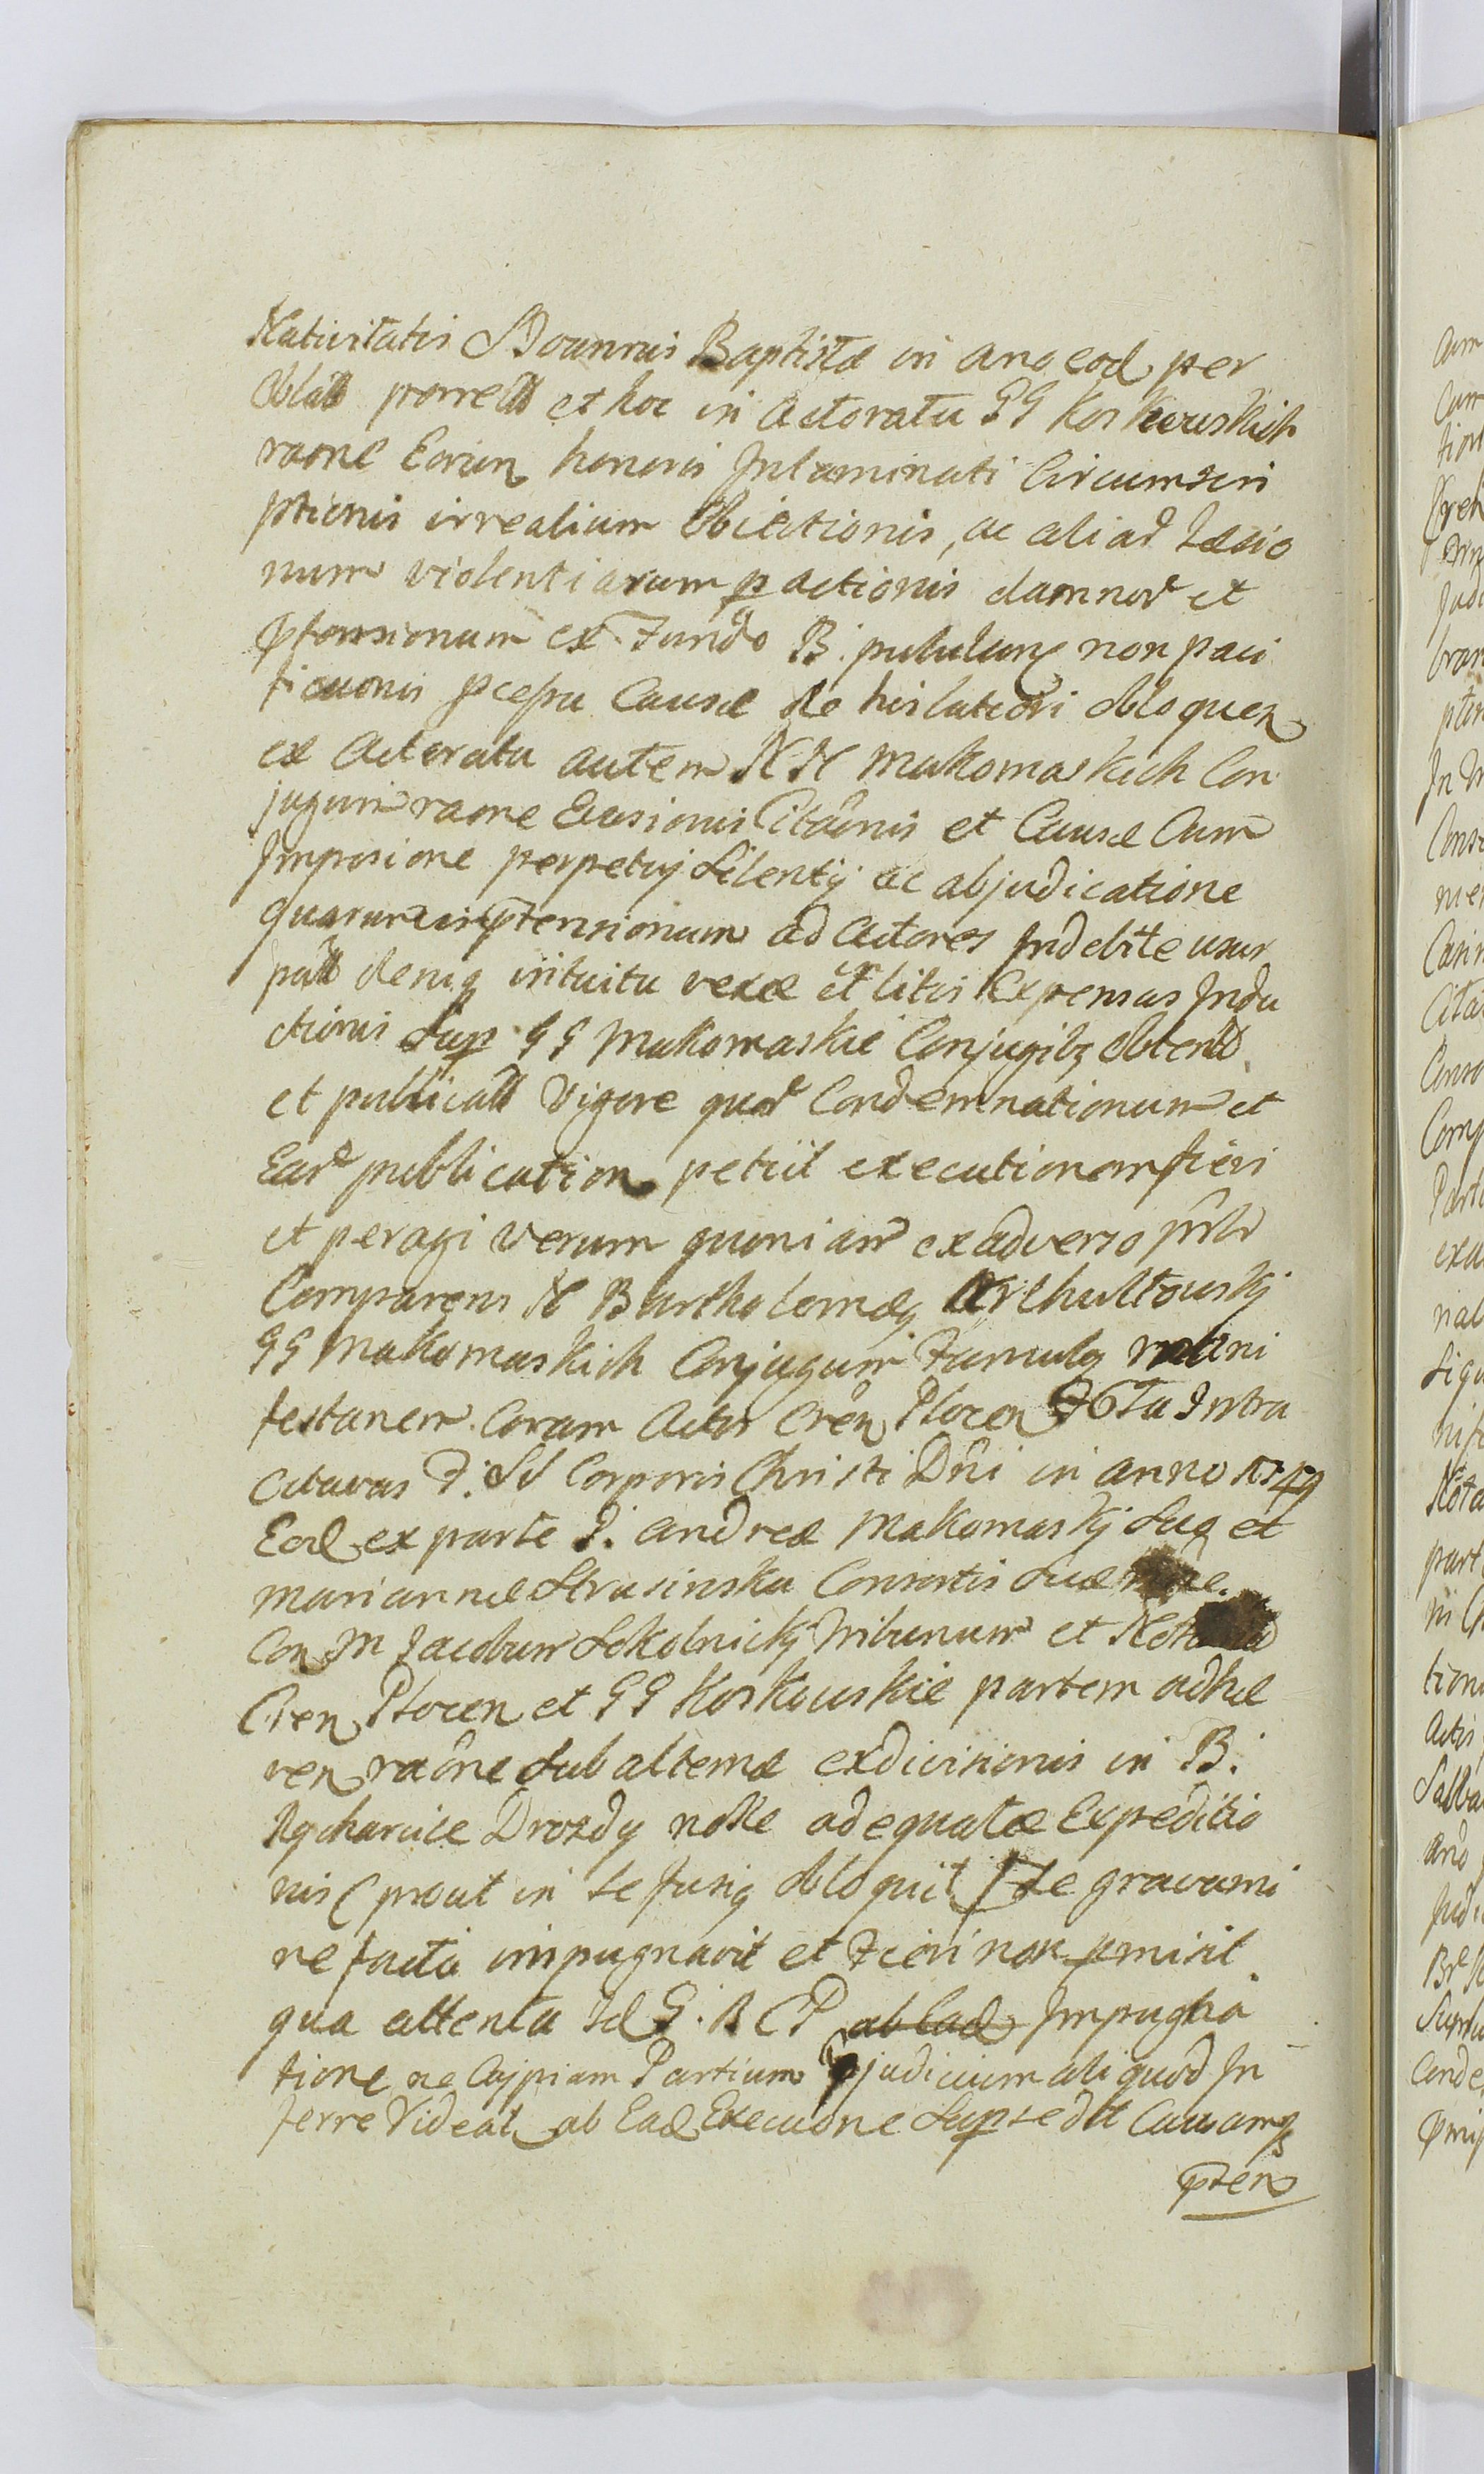 Nativitatis S Joannis Baptistæ in ano eod per
Oblat porrect et hoc in Actoratu GG Koskowskich
raone Eorun honoris Intaminati Circumscri
ptionis irrealium Obiectionis, ac aliar Læsio
num violentiarum pationis damnor et
ptensionum ex Fundo B. pululan non paci
ficaonis pcepu Causæ Re his latiori obloquen
ex Actoratu autem NN Makomaskich Con
jugum raone Evasionis Citaonis et Causæ Cum
Imposione perpetuj Silentij ac abjudicatione
quarumvis ptensionum ad Actores Indebite usur
pat deniq intuitu vexæ et litis Expensas Indu
ctionis Sup GG Makomaskie Conjugibz obtent
et publicat Vigore quar Condemnationum et
Ear publication petiit executionem fieri
et peragi verum quoniam ex adverso pnlr
Comparens N Bartholomæq
GG Makomaskich Conjugum Famulq mani
festanem. Coram Actis Cren Plocen Intra
octavas F. SS Corporis Christi Dni in anno 1749
Eod ex parte G. Andreæ Makomaskj Sug et
Mariannæ Strusinska Consortis suæ
Con M Jacobum Sokolnickj Tribunum et
Cren Plocen et GG Koskowskie partem adhæ
ren raone subalternæ exdivisionis in B.
Rycharcice Drozdy nolle adequatæ Expeditio
nis (prout in se fusiq obloquit) de gravami
ne facta impugnavit et Fieri non pmisit
qua attenta Id G. B C P ab Ead Impugna
tione ne Cujpiam Partium pjudicium aliquod In
ferre Videat ab Ead Execuone Supsedit Causamqs
pten